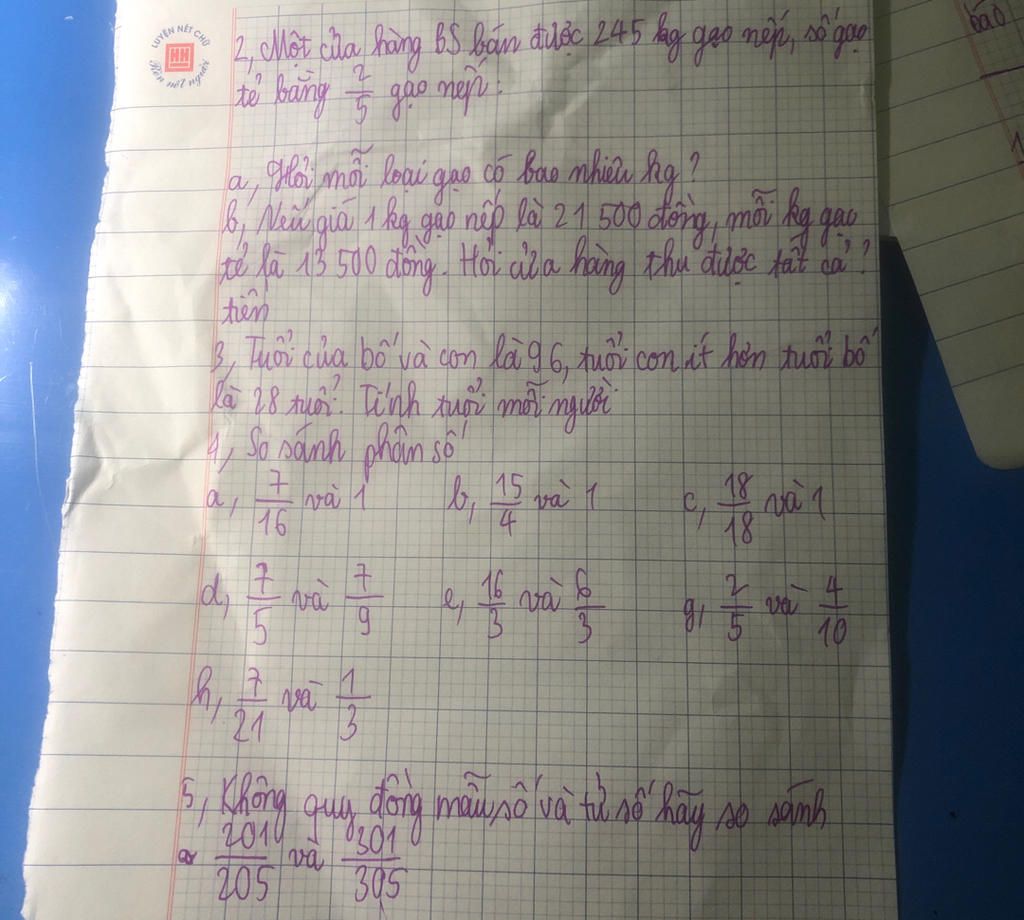 LUYỆN NÉT CHỮ
HH
Rèn nét người
2, Một cửa hàng BS bán được 245 kg gạo nếp, số gạo
tẻ bằng 2/5 gạo nếp.
a, Hỏi mỗi loại gạo có bao nhiêu kg?
b, Nếu giá 1 kg gạo nếp là 21 500 đồng, mỗi kg gạo
tẻ là 13 500 đồng. Hỏi cửa hàng thu được tất cả ?
tiền
3, Tuổi của bố và con là 96, tuổi con ít hơn tuổi bố
là 28 tuổi. Tính tuổi mỗi người
4, So sánh phân số
a, 7/16 và 1 b, 15/4 và 1 c, 18/18 và 1
d, 7/5 và 7/9 e, 16/3 và 8/3 g, 2/5 và 4/10
h, 7/21 và 1/3
5, Không quy đồng mẫu số và tử số hãy so sánh
a 201/205 và 301/305
báo